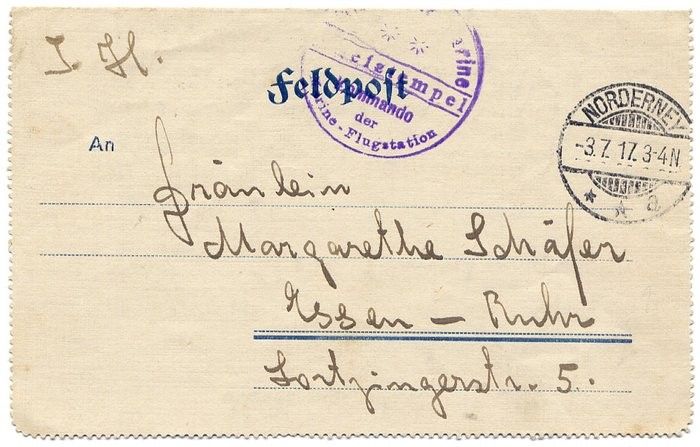 J. H.
Feldpost
Marine
Briefstempel
Kommando
der
Marine-Flugstation
NORDERNEY
-3.7.17.3-4N
* * a
An
Fräulein
Margarethe Schäfer
Essen - Ruhr
Lortzingerstr. 5.